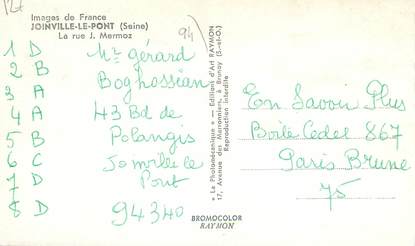 127
94)
Images de France
JOINVILLE-LE-PONT (Seine)
La rue J. Mermoz
1 D
2 B
3 A
4 A
5 B
6 C
7 D
8 D
Mr gérard
Boghossian
43 Bd de
Polangis
Joinville le
Pont
94340
« Le Photomécanique » - Editions d'Art RAYMON
17, Avenue des Marronniers, à Brunoy (S.-et-O.)
Reproduction interdite
En Savoir Plus
Boite Cedex 867
Paris Brune
75
BROMOCOLOR
RAYMON